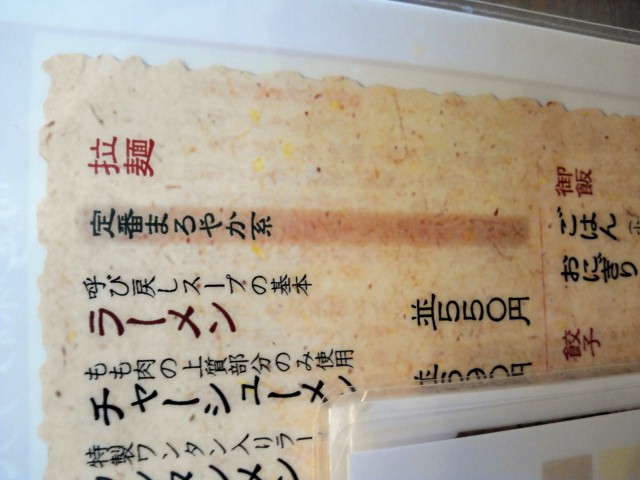 拉麺
定番まろやか系
呼び戻しスープの基本
ラーメン
並550円
もも肉の上質部分のみ使用
チャーシューメン
特製ワンタン入りラー
御飯
ごはん
おにぎり
餃子